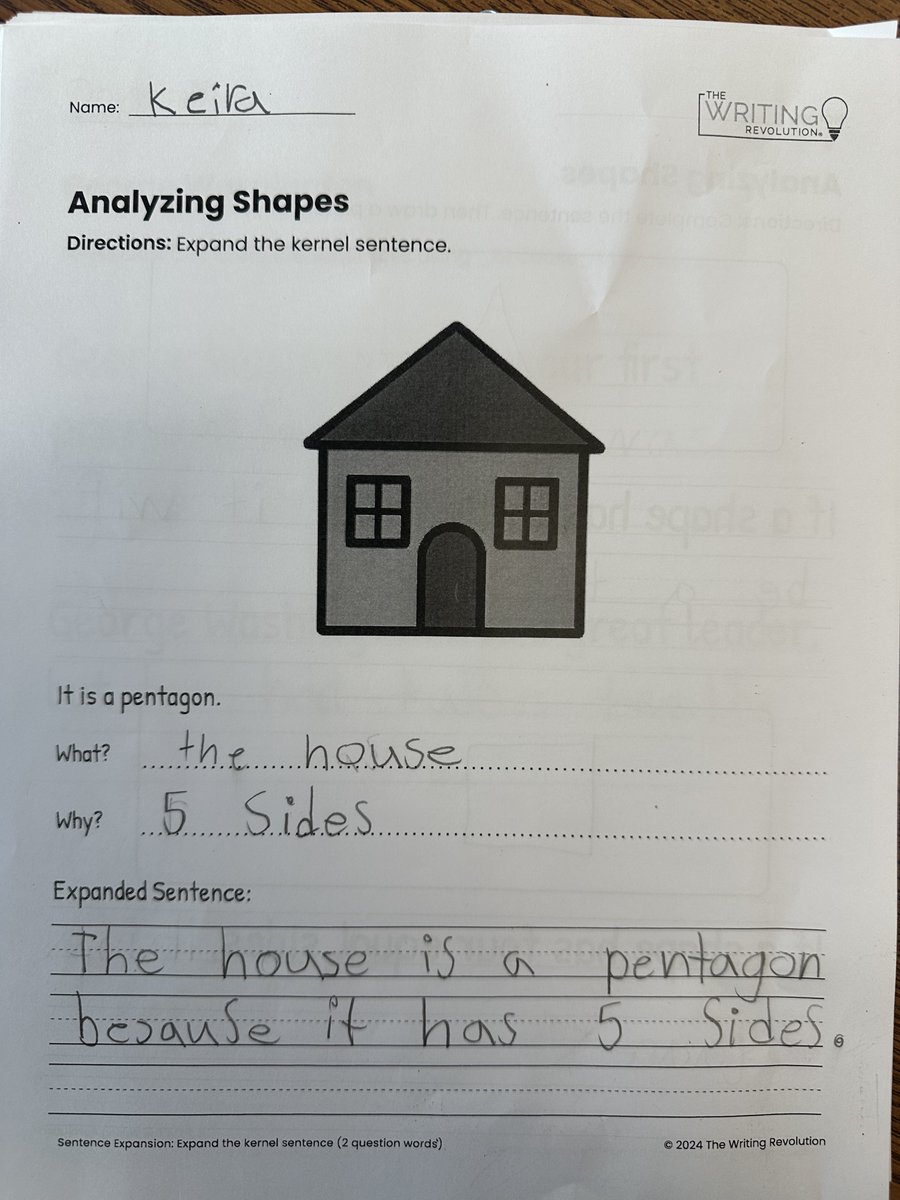 Name: Keira
THE
WRITING
REVOLUTION®
Analyzing Shapes
Directions: Expand the kernel sentence.
It is a pentagon.
What? the house
Why? 5 Sides
Expanded Sentence:
The house is a pentagon
besause it has 5 Sides.
Sentence Expansion: Expand the kernel sentence (2 question words)
© 2024 The Writing Revolution